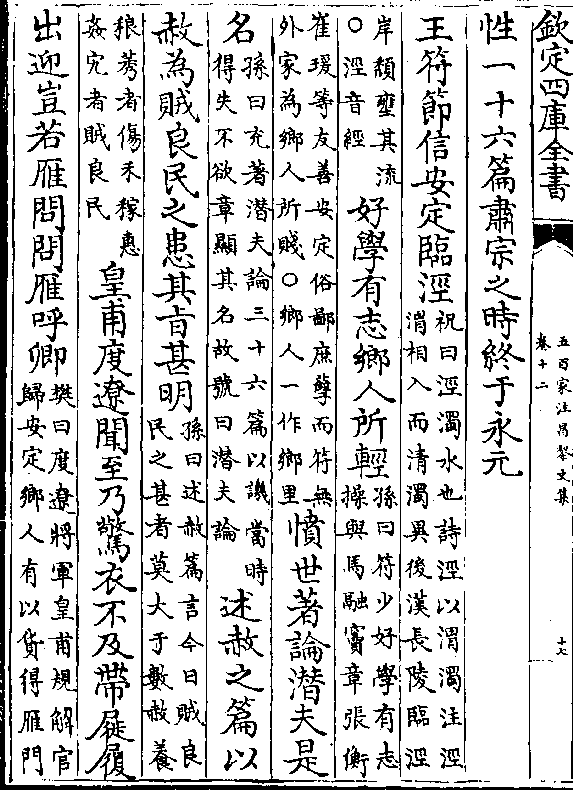 欽定四庫全書
五百家注昌黎文集
卷十二
十七
性一十六篇肅宗之時終于永元
王符節信安定臨涇
祝曰涇濁水也詩涇以渭濁注涇
渭相入而清濁異後漢長陵臨涇
岸頽壅其流
○涇音經
好學有志鄉人所輕
孫曰符少好學有志
操與馬融竇章張衡
崔瑗等友善安定俗鄙庶孽而符無
外家為鄉人所賤○鄉人一作鄉里
憤世著論潜夫是
名
孫曰充著潜夫論三十六篇以譏當時
得失不欲章顯其名故號曰潜夫論
述赦之篇以
赦為賊良民之患其旨甚明
孫曰述赦篇言今日賊良
民之甚者莫大于數赦養
稂莠者傷禾稼惠
姦宄者賊良民
皇甫度遼聞至乃驚衣不及帶屣履
出迎豈若雁問問雁呼卿
樊曰度遼將軍皇甫規解官
歸安定鄉人有以貨得雁門